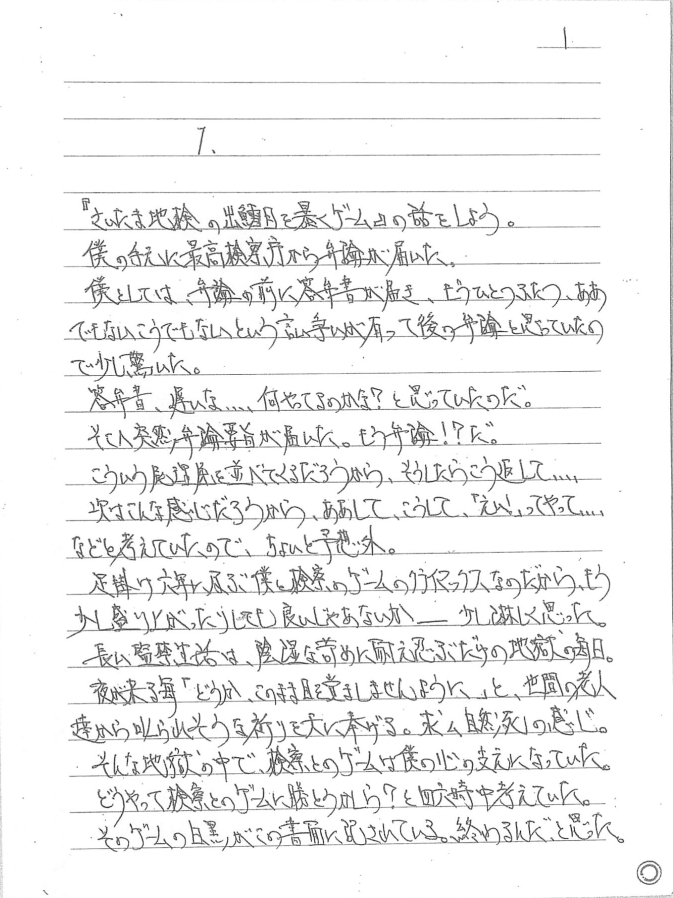 1
1.
『さいたま地検の出鱈目を暴くゲーム』の話をしよう。
僕の手元に最高検察庁から弁論が届いた。
僕としては、弁論の前に答弁書が届き、もうひとつふたつ、ああ
でもないこうでもないという言い争いが有って後の弁論と思っていたの
で少し驚いた。
答弁書、遅いな…、何やってるのかな?と思っていたのだ。
そこへ突然、弁論要旨が届いた。もう弁論!?だ。
こういう屁理屈を並べてくるだろうから、そうしたらこう返して…、
次はこんな感じだろうから、ああして、こうして、「えい!」ってやって…、
などと考えていたので、ちょいと予想外。
足掛け六年に及ぶ僕と検察のゲームのクライマックスなのだから、もう
少し盛り上がったりしても良いじゃあないか― 少し淋しく思った。
長い監禁生活は、陰湿な苛めに耐え忍ぶだけの地獄の毎日。
夜が来る毎「どうか、このまま目を覚ましませんように、」と、世間の老人
達から叱られそうな祈りを天に捧げる。求ム自然死の感じ。
そんな地獄の中で、検察とのゲームは僕の心の支えになっていた。
どうやって検察とのゲームに勝とうかしら?と四六時中考えていた。
そのゲームの白黒がこの書面に記されている。終わるんだ、と思った。